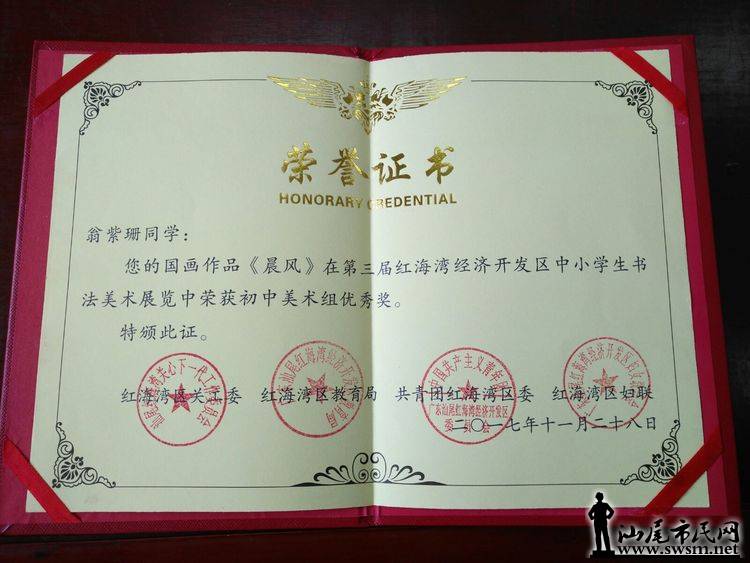 荣誉证书
HONORARY CREDENTIAL
翁紫珊同学：
您的国画作品《晨风》在第三届红海湾经济开发区中小学生书
法美术展览中荣获初中美术组优秀奖。
特颁此证。
红海湾区关工委 红海湾区教育局 共青团红海湾区委 红海湾区妇联
二〇一七年十一月二十八日
中国共产主义青年团
广东汕尾红海湾经济开发区
委员会
汕尾市民网
www.swsm.net